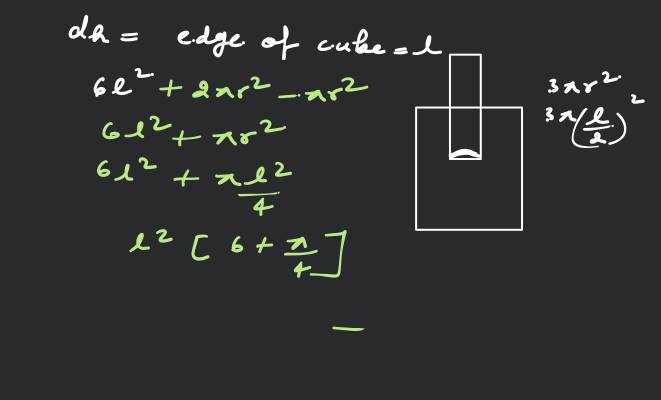 dh = edge of cube = l
6l² + 2πr² - πr²
6l² + πr²
6l² + πl²/4
l² [ 6 + π/4 ]
3πr²
3π(l/2)²